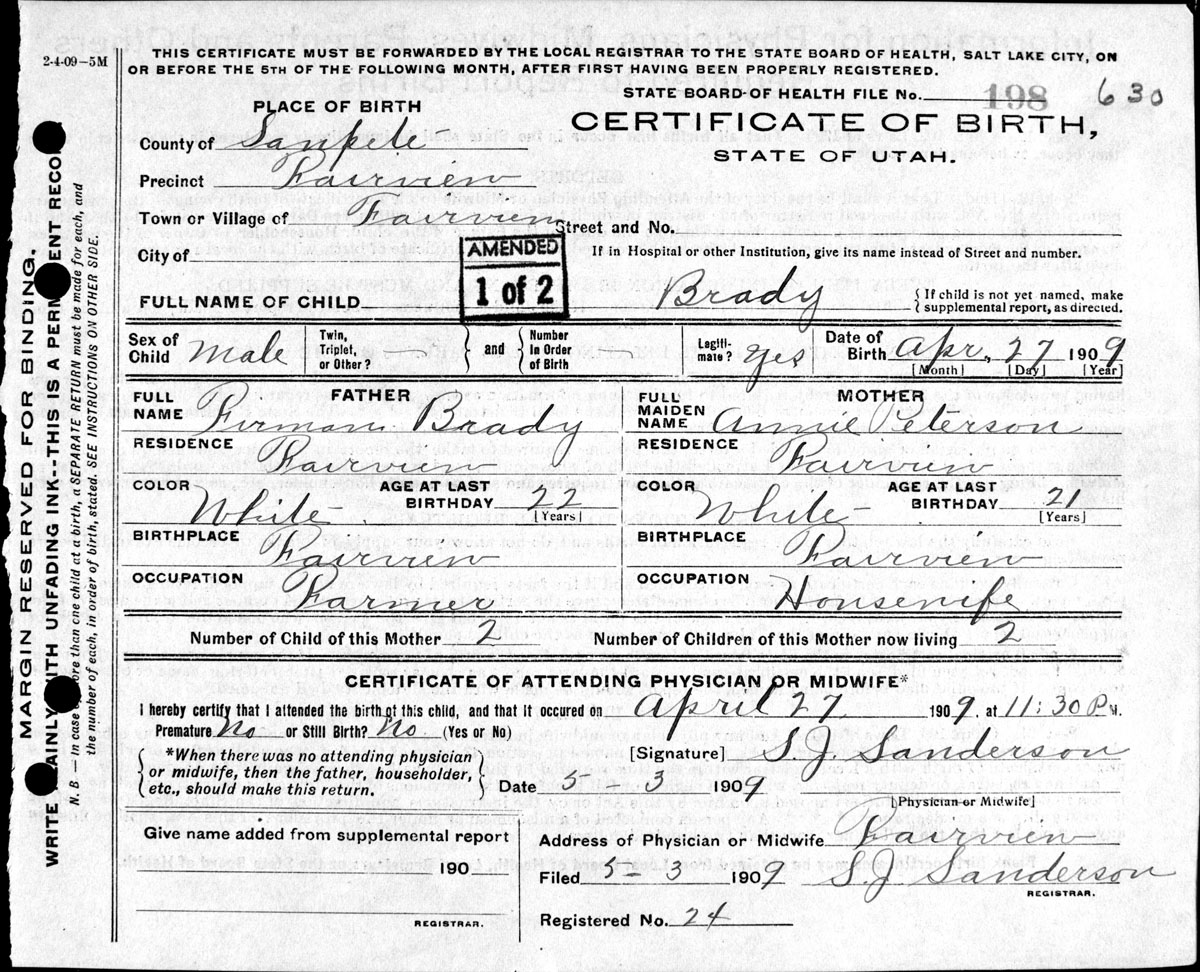 2-4-09-5M
THIS CERTIFICATE MUST BE FORWARDED BY THE LOCAL REGISTRAR TO THE STATE BOARD OF HEALTH, SALT LAKE CITY, ON
OR BEFORE THE 5TH OF THE FOLLOWING MONTH, AFTER FIRST HAVING BEEN PROPERLY REGISTERED.
STATE BOARD OF HEALTH FILE No. 198 630
PLACE OF BIRTH
CERTIFICATE OF BIRTH,
STATE OF UTAH.
County of Sanpete
Precinct Fairview
Town or Village of Fairview Street and No.
City of
If in Hospital or other Institution, give its name instead of Street and number.
AMENDED
1 of 2
FULL NAME OF CHILD Brady { If child is not yet named, make supplemental report, as directed.
Sex of Child Male Twin, Triplet, or Other? and Number In Order of Birth Legiti-mate? Yes Date of Birth Apr. 27 1909
[Month] [Day] [Year]
FATHER MOTHER
FULL NAME Firman Brady FULL MAIDEN NAME Annie Peterson
RESIDENCE Fairview RESIDENCE Fairview
COLOR White AGE AT LAST BIRTHDAY 22 [Years] COLOR White AGE AT LAST BIRTHDAY 21 [Years]
BIRTHPLACE Fairview BIRTHPLACE Fairview
OCCUPATION Farmer OCCUPATION Housewife
Number of Child of this Mother 2 Number of Children of this Mother now living 2
CERTIFICATE OF ATTENDING PHYSICIAN OR MIDWIFE*
I hereby certify that I attended the birth of this child, and that it occured on April 27 1909, at 11:30 P M.
Premature No or Still Birth? No (Yes or No)
*When there was no attending physician
or midwife, then the father, householder,
etc., should make this return.
[Signature] S.J. Sanderson
Date 5-3 1909
[Physician or Midwife]
Give name added from supplemental report
190
REGISTRAR.
Address of Physician or Midwife Fairview
Filed 5-3 1909 S.J. Sanderson
REGISTRAR.
Registered No. 24
MARGIN RESERVED FOR BINDING.
WRITE AINLY ITH UNFADING INK--THIS IS A PERM ENT RECOR
N. B.—In case ore than one child at a birth, a SEPARATE RETURN must be made for each, and
the number of each, in order of birth, stated. SEE INSTRUCTIONS ON OTHER SIDE.